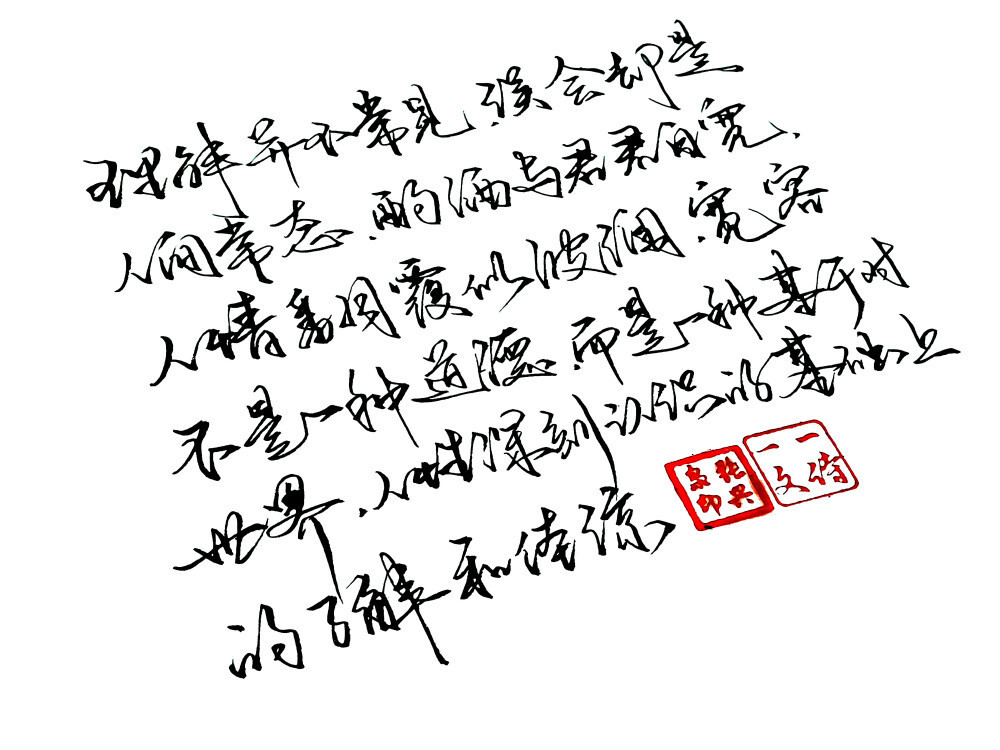 理解并不常见，误会却是
人间常态，酌酒与君君自宽，
人情翻覆似波澜，宽容
不是一种道德，而是一种基于对
世界，人性深刻认识的基础上
的了解和体谅